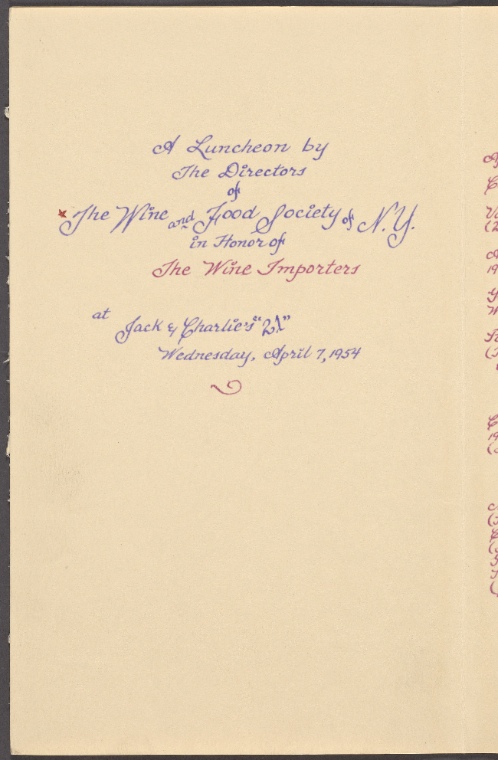 A Luncheon by
The Directors
of
The Wine and Food Society of N.Y.
in Honor of
The Wine Importers
at
Jack & Charlie's "21"
Wednesday, April 7, 1954